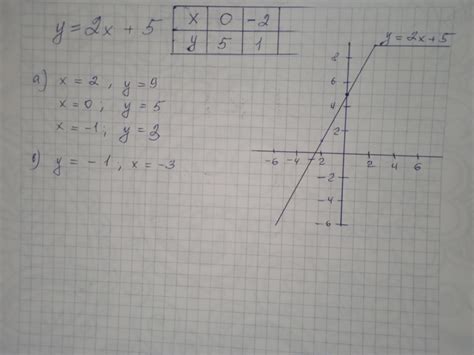 y = 2x + 5
x 0 -2
y 5 1
a) x = 2, y = 9
x = 0, y = 5
x = -1, y = 3
в) y = -1, x = -3
y = 2x + 5
8
6
4
2
-6 -4 -2 2 4 6
-2
-4
-6